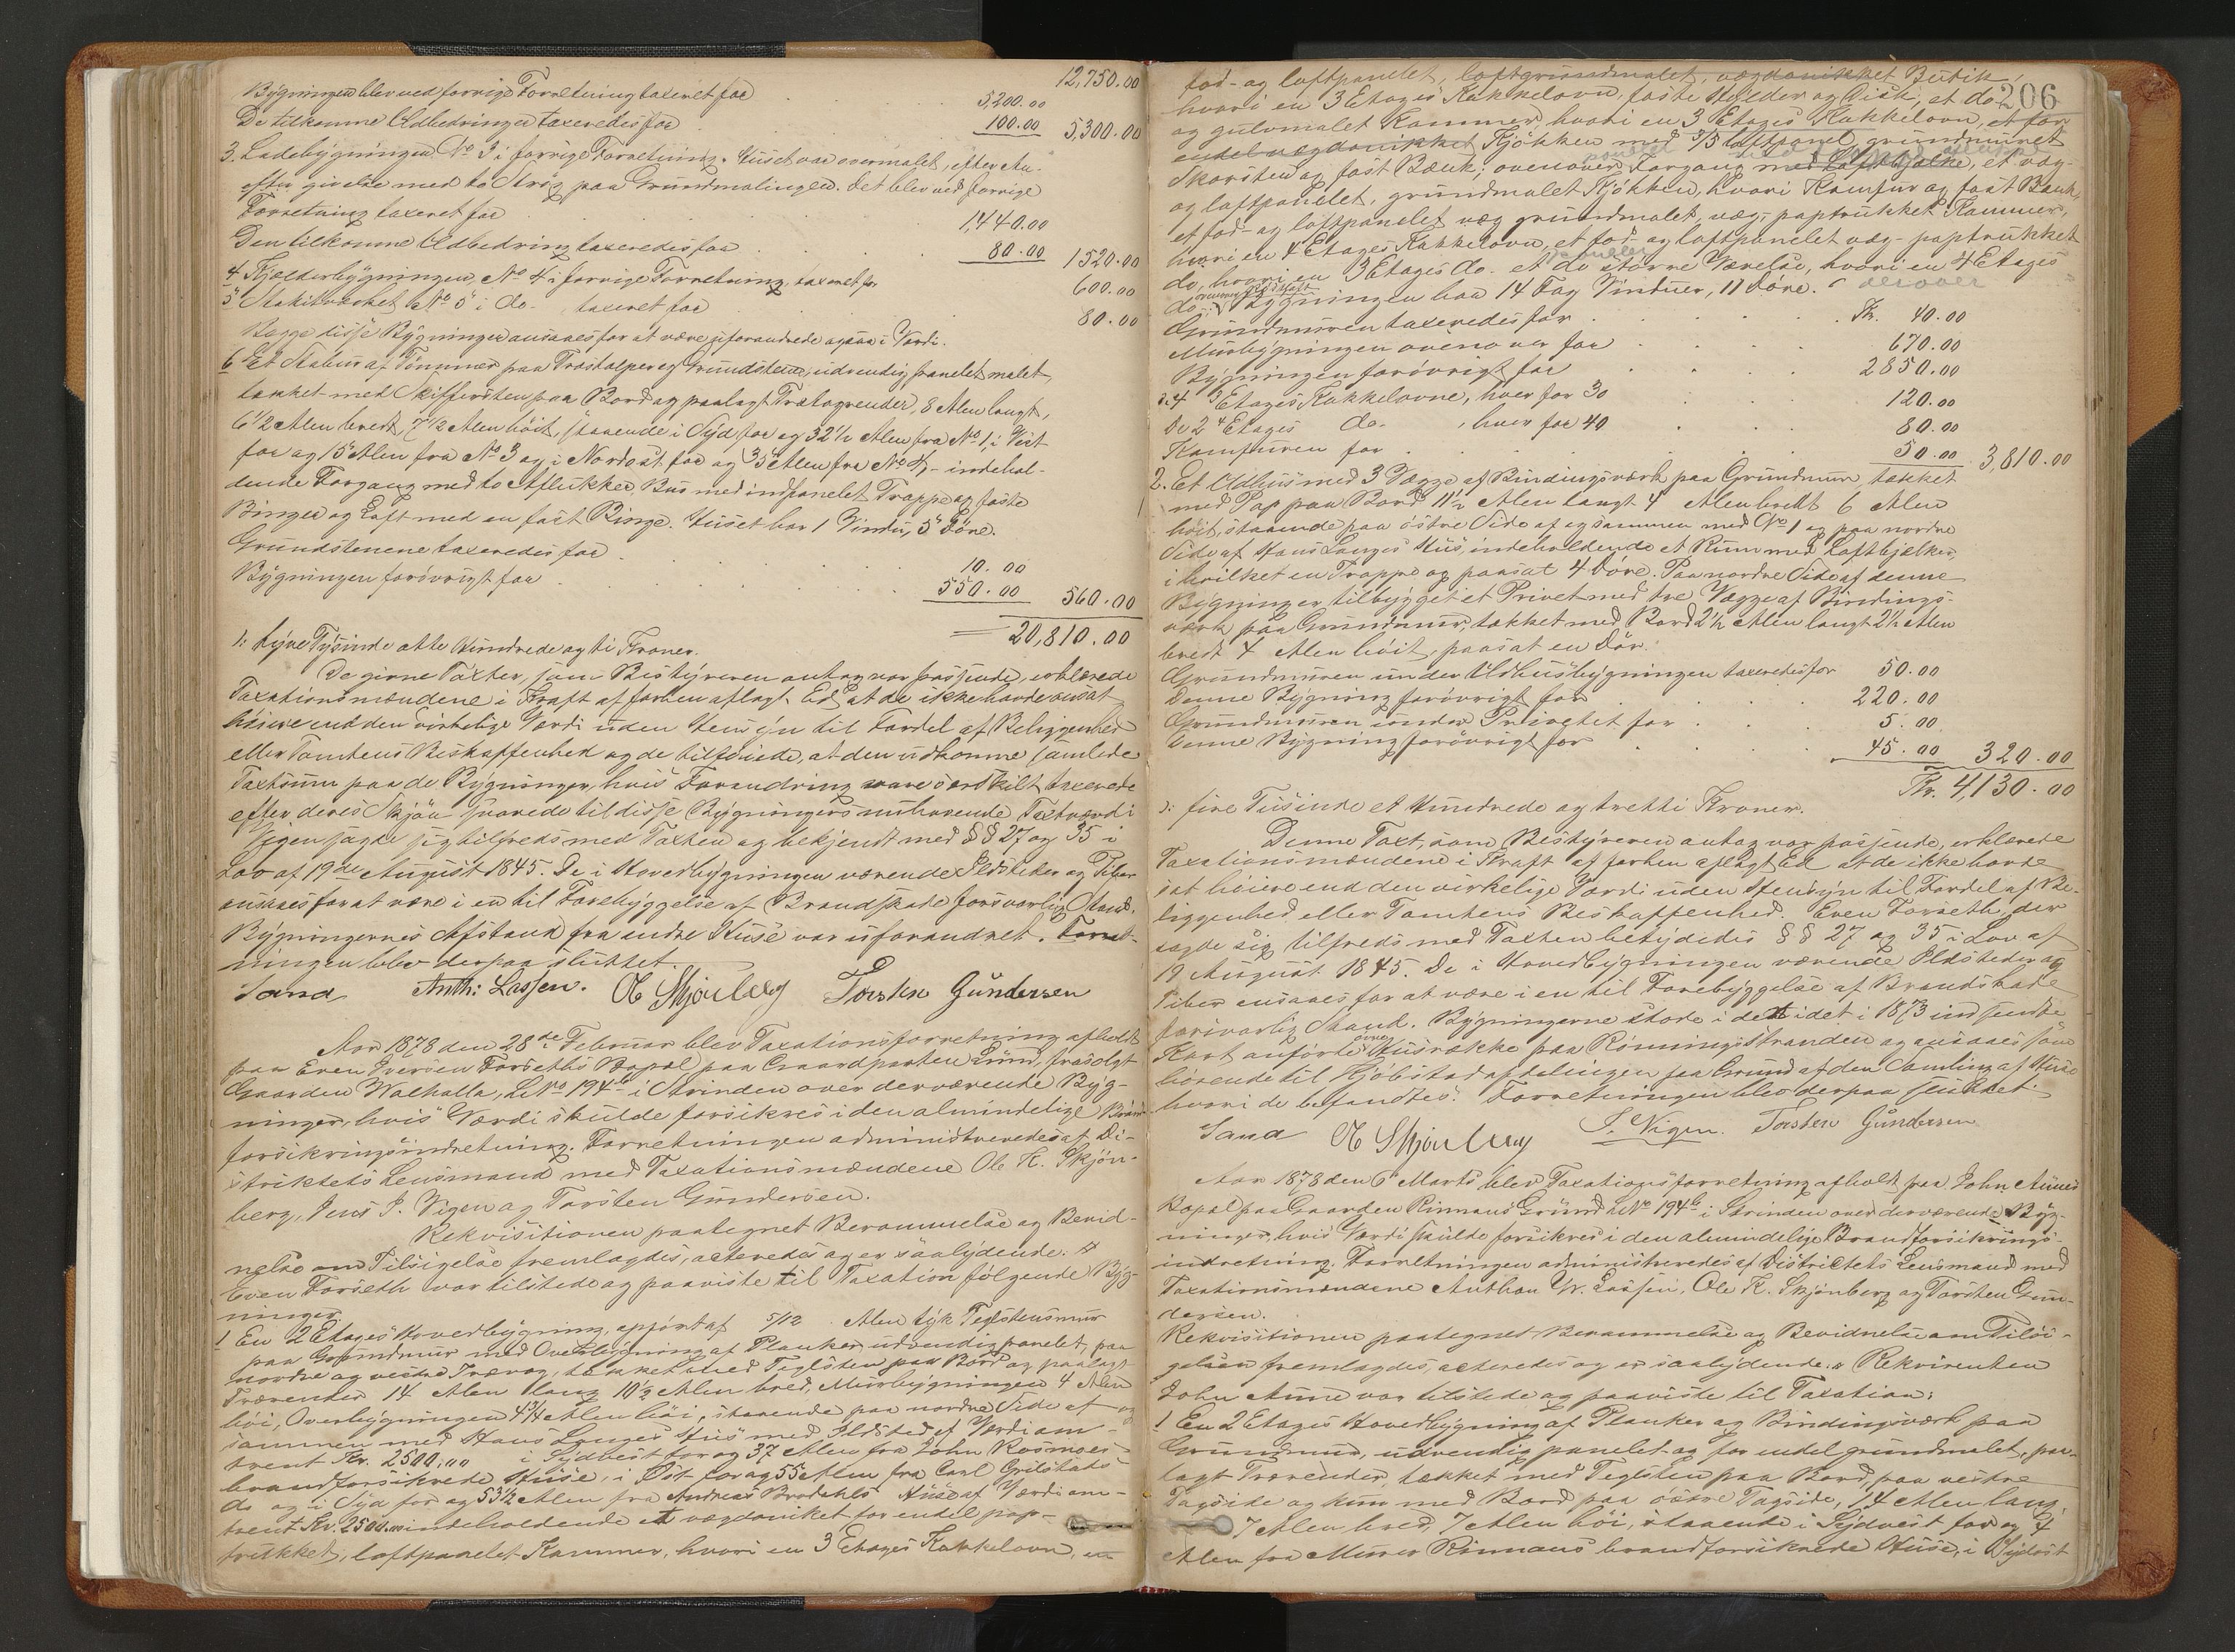 12,750.00
Bygningen blev ved forrige Forretning taxeret for 5,200.00
De tilkomne Udbedringer taxeredes for 100.00 5,300.00
3. Ladebygningen No 3 i forrige Forretning. Huset var overmalet, efter An-
givelse med to Strøg paa Grundmalingen. Det blev ved forrige
Forretning taxeret for 1,440.00
Den tilkomne Udbedring taxeredes for 80.00 1520.00
4 Kjælderbygningen, No 4 i forrige Forretning, taxeret for 600.00
5 Stakitværket No 5 i do. taxeret for 80.00
Begge disse Bygninger ansaaes for at være uforandrede ogsaa i Værdi.
6 Et Stabur af Tømmer paa Træstolper og Grundstene, udvendig panelet, malet,
tækket med Skiffersten paa Bord og paalagt Trætagrender, 8 Alen langt,
6 1/2 Alen bredt, 7 1/2 Alen høit, staaende i Syd for og 32 1/2 Alen fra No 1, i Vest
for og 15 Alen fra No 3 og i Nordost for og 35 Alen fra No 4, - indehol-
dende Forgang med to Aflukker, Bur med indpanelet Trappe og faste
Binger og Loft med en fast Binge. Huset har 1 Vindu, 5 Døre.
Grundstenene taxeredes for 10.00
Bygningen forøvrigt for 550.00 560.00
20,810.00
ɔ: tyve Tusinde otte Hundrede og ti Kroner.
De givne Taxter, som Bestyreren antog var passende, erklærede
Taxationsmændene i Kraft af forhen aflagt Ed at de ikke havde ansat
høiere end den virkelige Værdi uden Hensyn til Fordel af Beliggenhed
eller Tomtens Beskaffenhed og de tilføiede, at den udkomne samlede
Taxtsum paa de Bygninger, hvis Forandring var særskilt taxerede
efter deres Skjøn svarede til disse Bygningers nuhavende Taxtværdi
Eieren sagde sig tilfreds med Taxten og bekjendt med §§ 27 og 35 i
Lov af 19de August 1845. De i Hovedbygningen værende Ildsteder og Piber
ansaaes for at være i en til Forebyggelse af Brandskade forsvarlig Stand.
Bygningernes Afstand fra andre Huse var uforandret. Forret-
ningen blev derpaa sluttet.
Sand Anth: Lassen. O K Skjønberg Torsten Gundersen
Aar 1878 den 28de Februar blev Taxationsforretning afholdt
paa Even Iversen Forseths Bopæl paa Gaardparten Lund, frasolgt
Gaarden Walhalla, L No 194 b i Strinden over derværende Byg-
ninger, hvis Værdi skulde forsikres i den almindelige Brand-
forsikringsindretning. Forretningen administreredes af Di-
striktets Lensmand med Taxationsmændene Ole K. Skjøn-
berg, Jens J. Vigen og Torsten Gundersen.
Rekvisitionen paategnet Berammelse og Bevid-
nelse om Tilsigelse fremlagdes, acteredes og er saalydende:
Even Forseth var tilstede og paaviste til Taxation følgende Byg-
ninger
1 En 2 Etages Hovedbygning, opført af 5/12 Alen tyk Teglstensmur
paa Grundmur med Overbygning af Planker, udvendig panelet, paa
nordre og vestre Træveg, tækket med Teglsten paa Bord og paalagt
Trærender 14 Alen lang 10 1/2 Alen bred, Murbygningen 4 Alen
høi, Overbygningen 4 3/4 Alen høi, staaende paa nordre Side af og
sammen med Hans Langes Hus med Ildsted af Værdi om-
trent Kr. 2500.00 i Sydvest for og 37 Alen fra John Rosmoes
brandforsikrede Huse, i Øst for og 55 Alen fra Carl Grilstads
do og i Syd for og 53 1/2 Alen fra Andreas Brodahls Huse af Værdi om-
trent Kr. 2500.00 indeholdende et vægdoniket for endel pap-
trukket, loftpanelet Kammer, hvori en 3 Etages Kakkelovn, en
206
fod- og loftpanelet, loftgrundmalet, vægdoniket Butik,
hvori en 3 Etages Kakkelovn, faste Hylder og Disk, et do
og gulvmalet Kammer, hvori en 3 Etages Kakkelovn, et for
endel vægdoniket Kjøkken med 2/3 loftpanel, grundmuret
Skorsten og fast Bænk; ovenover Forgang med Loftbjælke, et væg-
og loftpanelet, grundmalet Kjøkken, hvori Komfur og fast Bænk,
et fod- og loftpanelet væg grundmalet, væg-paptrukket Kammer,
hvori en 4 Etages Kakkelovn, et fod- og loftpanelet væg-paptrukket
do, hvori en 3 Etages do. et do større Værelse, hvori en 4 Etages
do. Bygningen har 14 Fag Vinduer, 11 Døre. derover
Grundmuren taxeredes for Kr. 40.00
Murbygningen ovenover for 670.00
Bygningen forøvrigt for 2850.00
De 4 3 Etages Kakkelovne, hver for 30 120.00
De 2 4 Etages do. , hver for 40 80.00
Komfuren for 50.00 3,810.00
2. Et Udhus med 3 Vægge af Bindingsværk paa Grundmur tækket
med Pap paa Bord 11 1/2 Alen langt 4 Alen bredt 6 Alen
høit, staaende paa østre Side af og sammen med No 1 og paa nordre
Side af Hans Langes Hus, indeholdende et Rum med Loftbjelker,
i hvilket en Trappe og paasat 4 Døre. Paa nordre Side af denne
Bygning er tilbygget et Privet med tre Vægge af Bindings-
værk paa Grundmur, tækket med Bord 2 1/2 Alen langt 2 1/2 Alen
bredt 4 Alen høit, paasat en Dør.
Grundmuren under Udhusbygningen taxeredes for 50.00
Denne Bygning forøvrigt for 220.00
Grundmuren under Privetet for 5.00
Denne Bygning forøvrigt for 45.00 320.00
Kr. 4,130.00
ɔ: fire Tusinde et Hundrede og tretti Kroner.
Denne Taxt, som Bestyreren antog var passende, erklærede
Taxationsmændene i Kraft af forhen aflagt Ed at de ikke havde
sat høiere end den virkelige Værdi uden Hensyn til Fordel af Be-
liggenhed eller Tomtens Beskaffenhed. Even Forseth, der
sagde sig tilfreds med Taxten betydedes §§ 27 og 35 i Lov af
19 August 1845. De i Hovedbygningen værende Ildsteder og
Piber ansaaes for at være i en til Forebyggelse af Brandskade
forsvarlig Stand. Bygningerne stode i det i det i 1873 indsendte
Kart anførte øvre Husrække paa Rønningsstranden og ansaaes som
hørende til Kjøbstadafdelingen paa Grund af den Samling af Huse
hvori de befandtes. Forretningen blev derpaa sluttet.
Sand O K Skjønberg J. Vigen. Torsten Gundersen
Aar 1878 den 6 Marts blev Taxationsforretning afholdt paa John Aunes
Bopæl paa Gaarden Rinnans Grund L No 194 b i Strinden over derværende Byg-
ninger, hvis Værdi skulde forsikres i den almindelige Brandforsikrings-
indretning. Forretningen administreredes af Districtets Lensmand med
Taxationsmændene Anthon W. Lassen, Ole K. Skjønberg og Torsten Gun-
dersen.
Rekvisitionen paategnet Berammelse og Bevidnelse om Tilsi-
gelsen fremlagdes, acteredes og er saalydende: Rekvirenten
John Aune var tilstede og paaviste til Taxation:
1 En 2 Etages Hovedbygning af Planker og Bindingsværk paa
Grundmur, udvendig panelet og for endel grundmalet, paa-
lagt Trærender, tækket med Teglsten paa Bord, paa vestre
Tagside og kun med Bord paa østre Tagside, 14 Alen lang,
7 Alen bred, 7 Alen høi, staaende i Sydvest for og 4
Alen fra Murer Rinnans brandforsikrede Huse, i Sydost